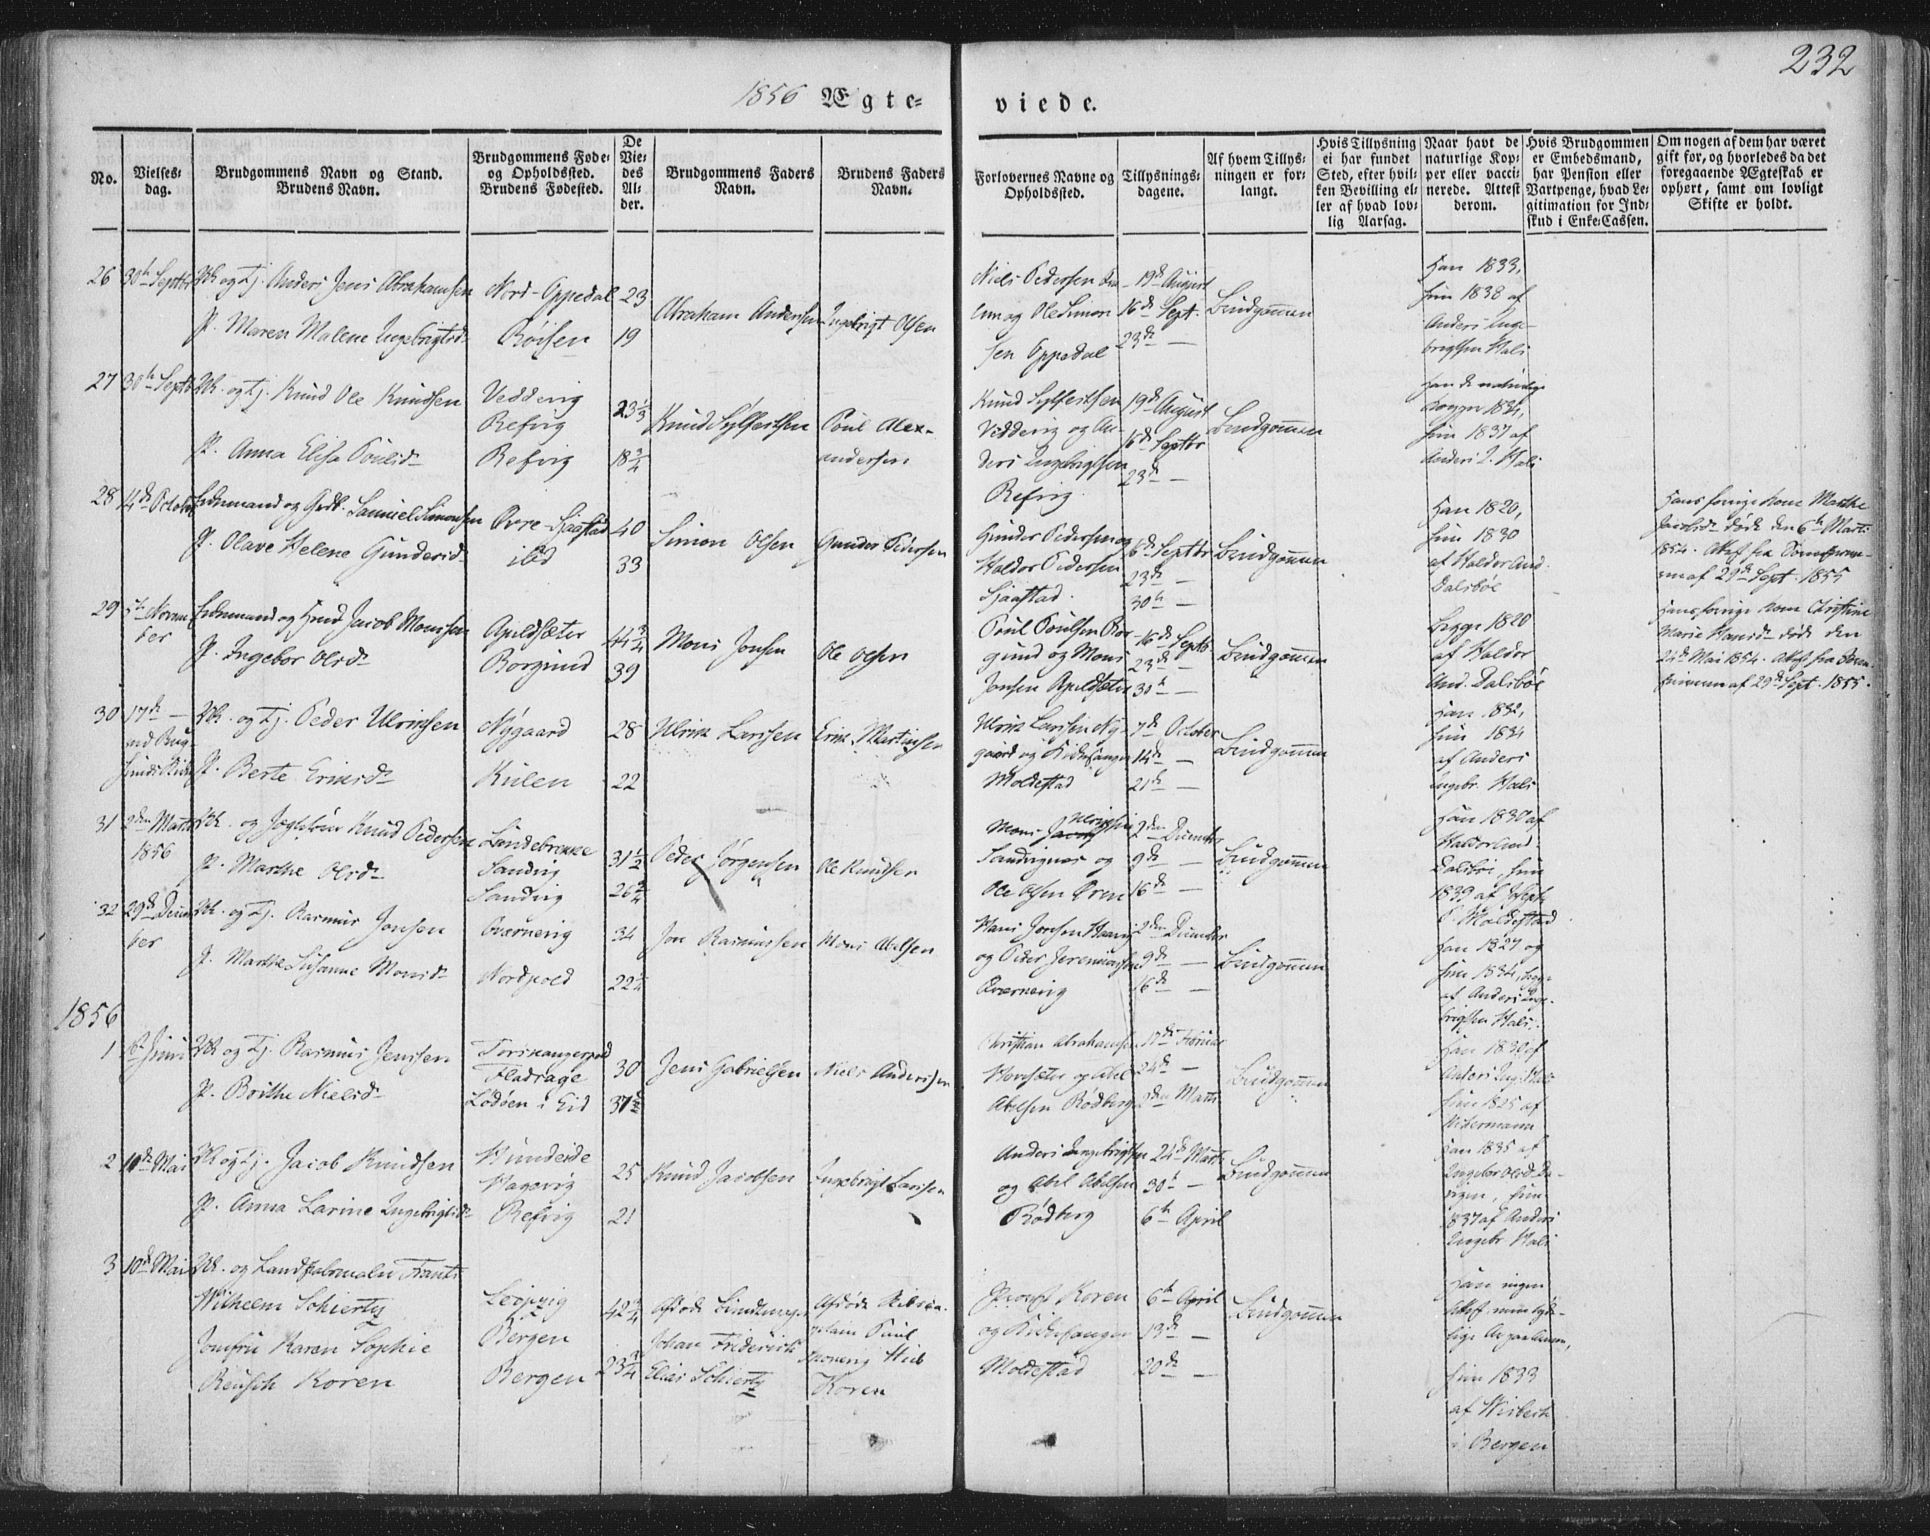 232
1856 Ægte-
viede.
No.
Vielses-
dag.
Brudgommens Navn og Stand.
Brudens Navn.
Brudgommens Føde-
og Opholdssted.
Brudens Fødested.
De
Vie-
des
Al-
der.
Brudgommens Faders
Navn.
Brudens Faders
Navn.
Forlovernes Navne og
Opholdssted.
Tillysnings-
dagene.
Af hvem Tillys-
ningen er for-
langt.
Hvis Tillysning
ei har fundet
Sted, efter hvil-
ken Bevilling el-
ler af hvad lov-
lig Aarsag.
Naar havt de
naturlige Kop-
per eller vacci-
nerede. Attest
derom.
Hvis Brudgommen
er Embedsmand,
har Pension eller
Vartpenge, hvad Le-
gitimation for Ind-
skud i Enke-Cassen.
Om nogen af dem har været
gift før, og hvorledes da det
foregaaende Ægteskab er
ophørt, samt om lovligt
Skifte er holdt.
26 30te Septbr Uk og Tj. Anders Jens Abrahamsen
P. Maren Malene Ingebrigtsd.
Nord-Oppedal
Røisen
23
19
Abraham Andersen
Ingebrigt Olsen
Niels Pedersen
og Ole Simon
sen Oppedal
19de August
16de Sept.
23de —
Brudgommen
Han 1833,
hun 1838 af
Anders Inge-
brigtsen Hals
27 30te Septb Uk. og Tj. Knud Ole Knudsen
P. Anna Elisa Poulsd.
Vedvig
Refvig
Refvig
23 1/3
18 3/4
Knud Sylfestsen
Poul Alex-
andersen
Knud Sylfestsen
Vedvig og An-
ders Ingebrigtsen
Refvig.
19de August
16de Septbr
23de —
Brudgommen
Han de naturlige
Kopper 1834,
hun 1837 af
Anders I. Hals
28 14de October Enkemand og Gdb. Samuel Simonsen
P. Olave Helene Gundersd.
Øvre-Sjaastad
ibd
40
33
Simon Olsen
Gunder Pedersen
Gunder Pedersen og
Haldor Pedersen
Sjaastad.
16de Septbr
23de —
30te —
Brudgommen
Han 1820,
hun 1830
af Haldor And.
Dalsbøe
Hans forrige Kone Marthe
Jacobsd. døde den 6te Marts
1854. Attest fra
af 29de Sept. 1855
29 5te Novem-
ber
Enkemand og Jacob Monssen
P. Ingebor Olsd.
Apeldsæter
Borgund
44 3/4
39
Mons Jonsen
Ole Olsen
Poul Poulsen Bor-
gund og Mons
Jonsen Apeldsæter
16de Septb
23de —
30te —
Brudgommen
begge 1820
af Haldor
And. Dalsbøe
Hans forrige Kone Christine
Marie Hansd. døde den
24de Mai 1854. Attest fra
af 29de Sept. 1855.
30 17de —
Uk. og Tj. Peder Ulriksen
P. Berte Eriksd.
Nygaard
Kulen
28
22
Ulrik Larssen
Erik Martinsen
Ulrik Larssen Ny-
gaard og Kirkesanger
Moldestad
7de October
14de —
21de —
Brudgommen
Han 1832,
hun 1834
af Anders
Ingebr. Hals
31 2den Marts
1856
Uk. og Knud Pedersen
P. Marthe Olsd.
Lundebrekke
Sandvig
Sandvig
31 1/2
26 3/4
Peder Jørgensen
Ole Knudsen
Mons Ulriksen
Sandvignes og
Ole Olsen Øren
2den December
9de —
16de —
Brudgommen
Han 1830 af
Haldor And.
Dalsbøe, hun
1833 af Joseph
P. Moldestad
32 29de Decem-
ber
Uk. og Tj. Rasmus Jonsen
P. Marthe Susanne Monsd.
Qvernevig
Nordpold
34
22 1/4
Jon Rasmussen
Mons Abelsen
Hans Jonsen
og Peder Jeremiassen
Qvernevig
2den December
9de —
16de —
Brudgommen
Han 1827 og
hun 1834, begge
af Anders Inge-
brigtsen Hals.
1856
1 Juni Uk og Tj. Rasmus Jenssen
P. Brithe Nielsd.
Torskangerpold
Fladrage
Lødøen i Eid
30
37
Jens Gabrielsen
Niels Anderssen
Christian Abrahamsen
og Abel
Abelsen Rødberg
17de Februar
24de —
2den Marts
Brudgommen
Han 1830 af
Anders Ing. Hals
hun 1825 af
2 10de Mai Uk og Tj. Jacob Knudsen
P. Anna Larine Ingebrigtsd.
Hundeide
Refvig
25
21
Knud Jacobsen
Ingebrigt Larssen
Anders Ingebrigtsen
og Abel Abelsen
Rødberg
24de Marts
30te —
6te April
Brudgommen
Han 1835 af
Ingebor Olsd.
hun
1837 af Anders
Ingebr Hals
3 10de Mai Uk. og Landskabsmaler Frants
Wilhelm Schiertz
Jomfru Karen Sophie
Reusch Koren
Leipzig
Bergen
Bergen
42 3/4
23 3/4
Afdøde
Johan Friderich
Elias Schiertz
Afdøde
Poul
Koren
Provst Koren
og Kirkesanger
Moldestad
6te April
13de —
20de —
Brudgommen
Han ingen
Attest men
hun 1833
af Wisbech
i Bergen